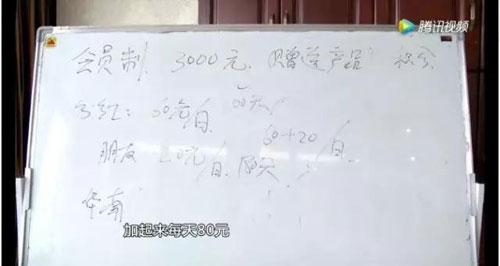 腾讯视频
会员制 3000元 赠送产品 积分
分红: 60元/日 60天
60+20/日
朋友 20元/日
华南
加起来每天80元